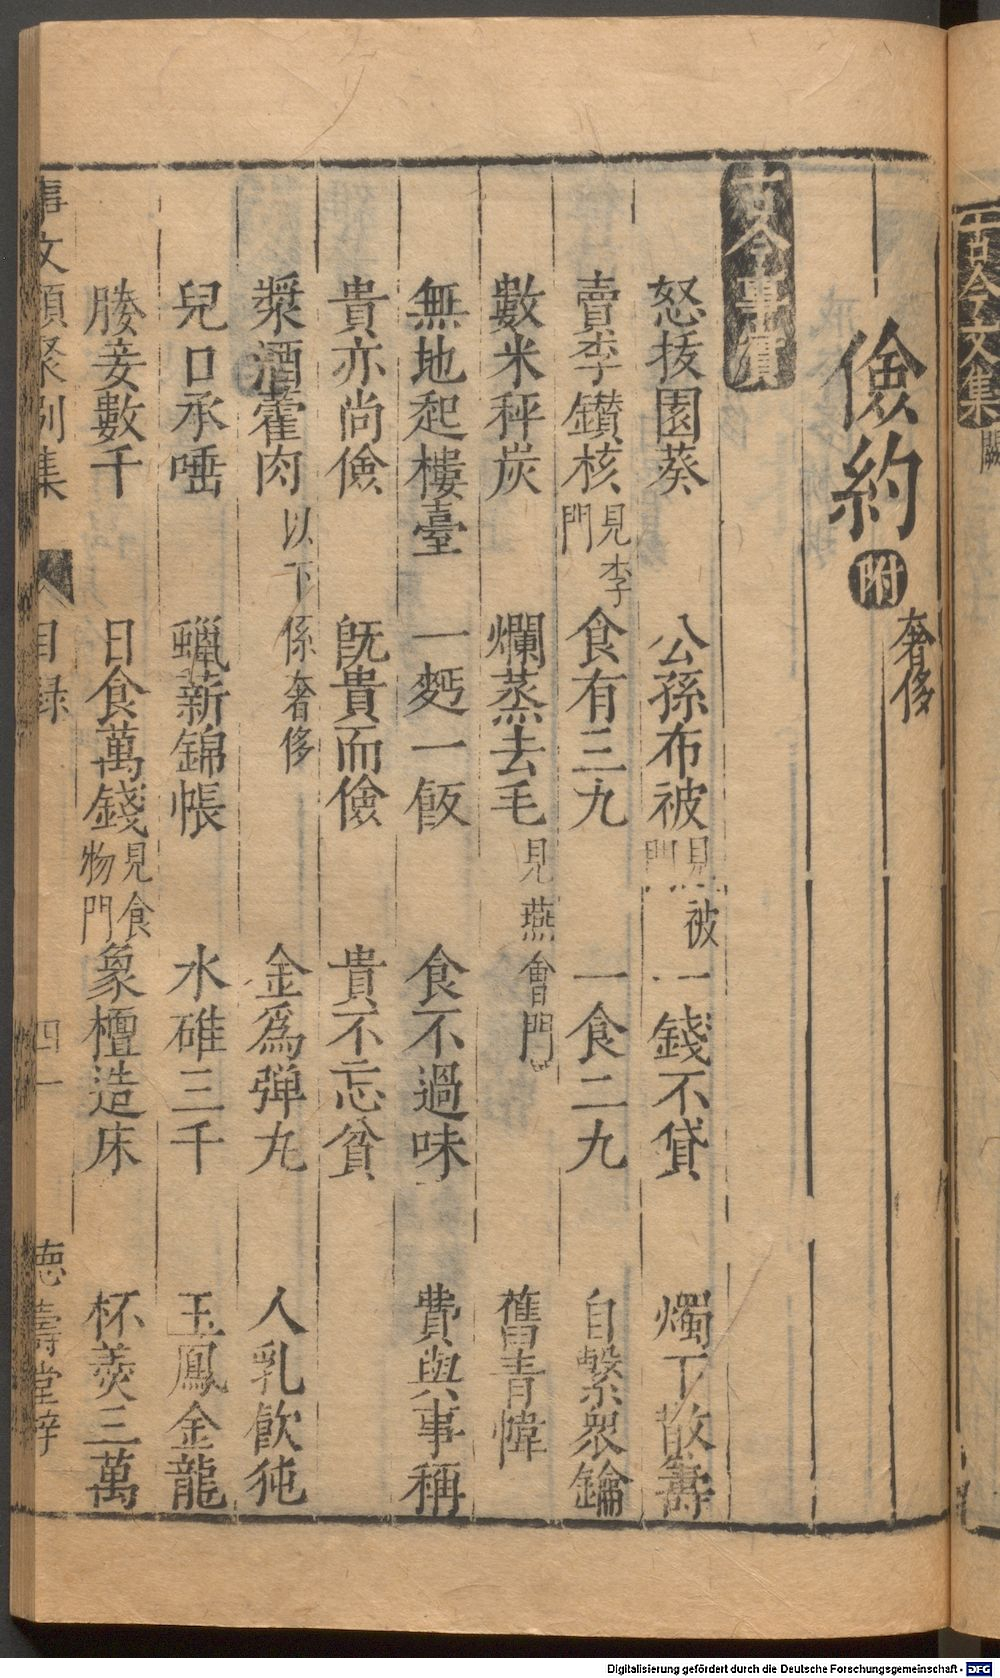 古今文集 闕
儉約 附 奢侈
古今事實
怒拔園葵 公孫布被 見被門 一錢不貸 燭下散籌
賣李鑚核 見李門 食有三九 一食二九 自繫衆鑰
數米秤炭 爛蒸去毛 見燕會門 舊青幃
無地起樓臺 一麪一飯 食不過味 費與事稱
貴亦尚儉 旣貴而儉 貴不忘貧
漿酒藿肉 以下係奢侈 金爲彈丸 人乳飮㹠
兒口承唾 蠟薪錦帳 水碓三千 玉鳳金龍
媵妾數千 日食萬錢 見食物門 象檀造床 杯羹三萬
事文類聚別集 目録 四一 德壽堂梓
Digitalisierung gefördert durch die Deutsche Forschungsgemeinschaft - DFG